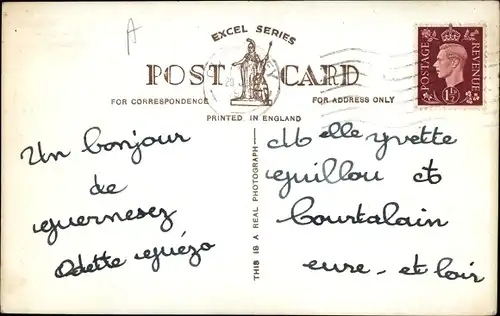 A
EXCEL SERIES
POST CARD
FOR CORRESPONDENCE
FOR ADDRESS ONLY
PRINTED IN ENGLAND
POSTAGE
REVENUE
1½D
THIS IS A REAL PHOTOGRAPH
Un bonjour
de
guernesez
Odette Guézo
Melle Yvette
Guillou
Courtalain
eure-et loir